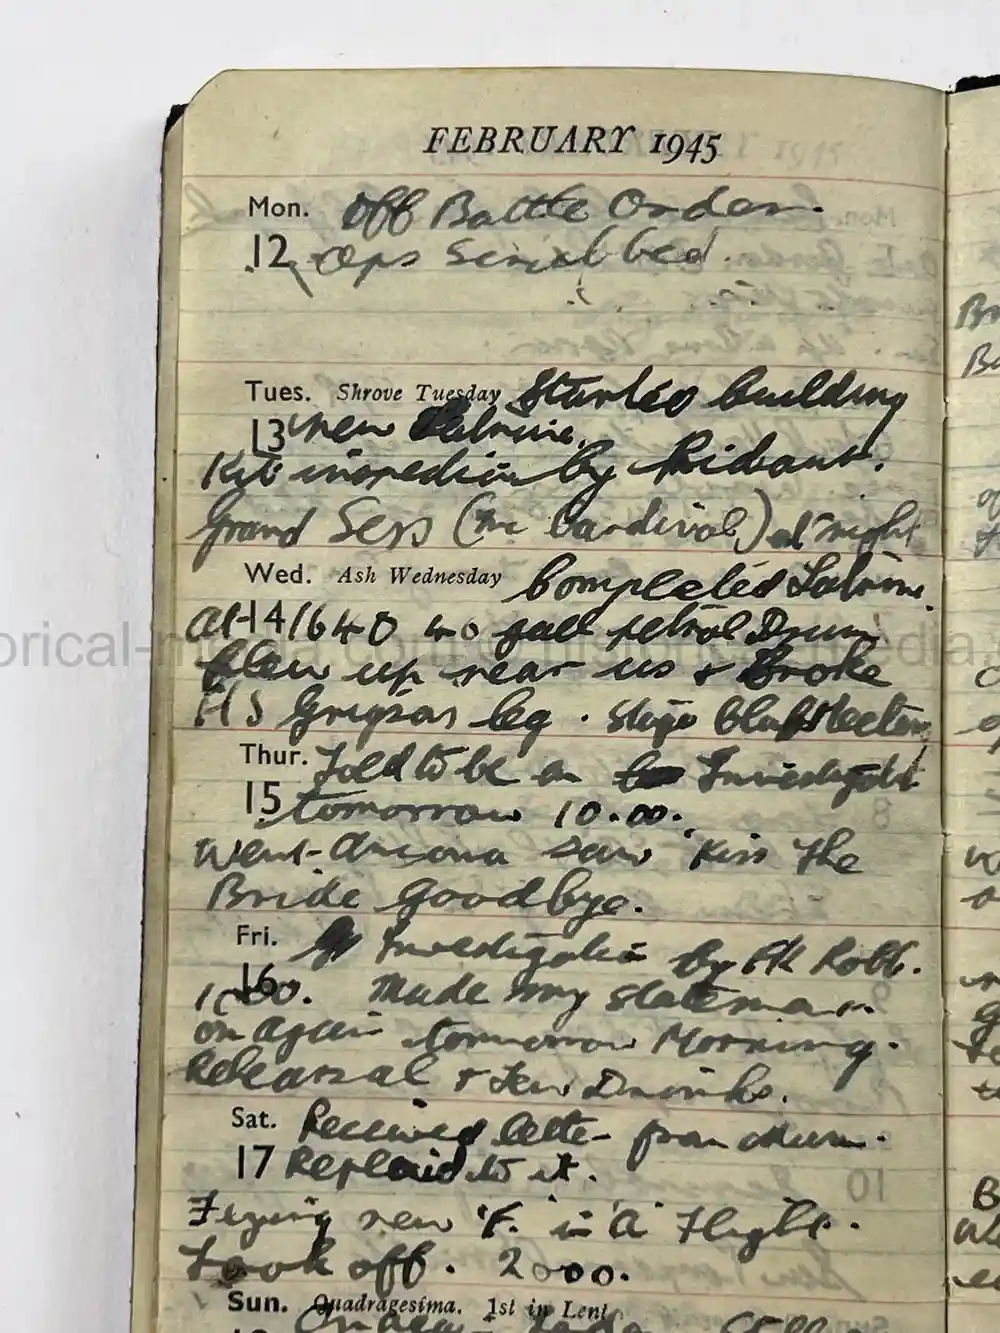 FEBRUARY 1945
Mon. Off Battle Order.
12 Ops
Tues. Shrove Tuesday Started building
13 new Latrine.
Kit by
Grand Sess (Mc ) at night
Wed. Ash Wednesday Completed Latrine.
At 14 1640 40 gall petrol Drum
blew up near us & Broke
F/S leg. Stage
Thur. Told to be on
15 tomorrow 10.00.
Went Ancona saw 'Kiss The
Bride Goodbye.
Fri. Investigation by Robb.
16 1000. Made my statement.
on again tomorrow Morning.
Rehearsal & Few Drinks.
Sat. Received letter from Mum.
17 Replied to it.
Flying new 'F' in 'A' Flight.
Took off. 2000.
Sun. Quadragesima. 1st in Lent